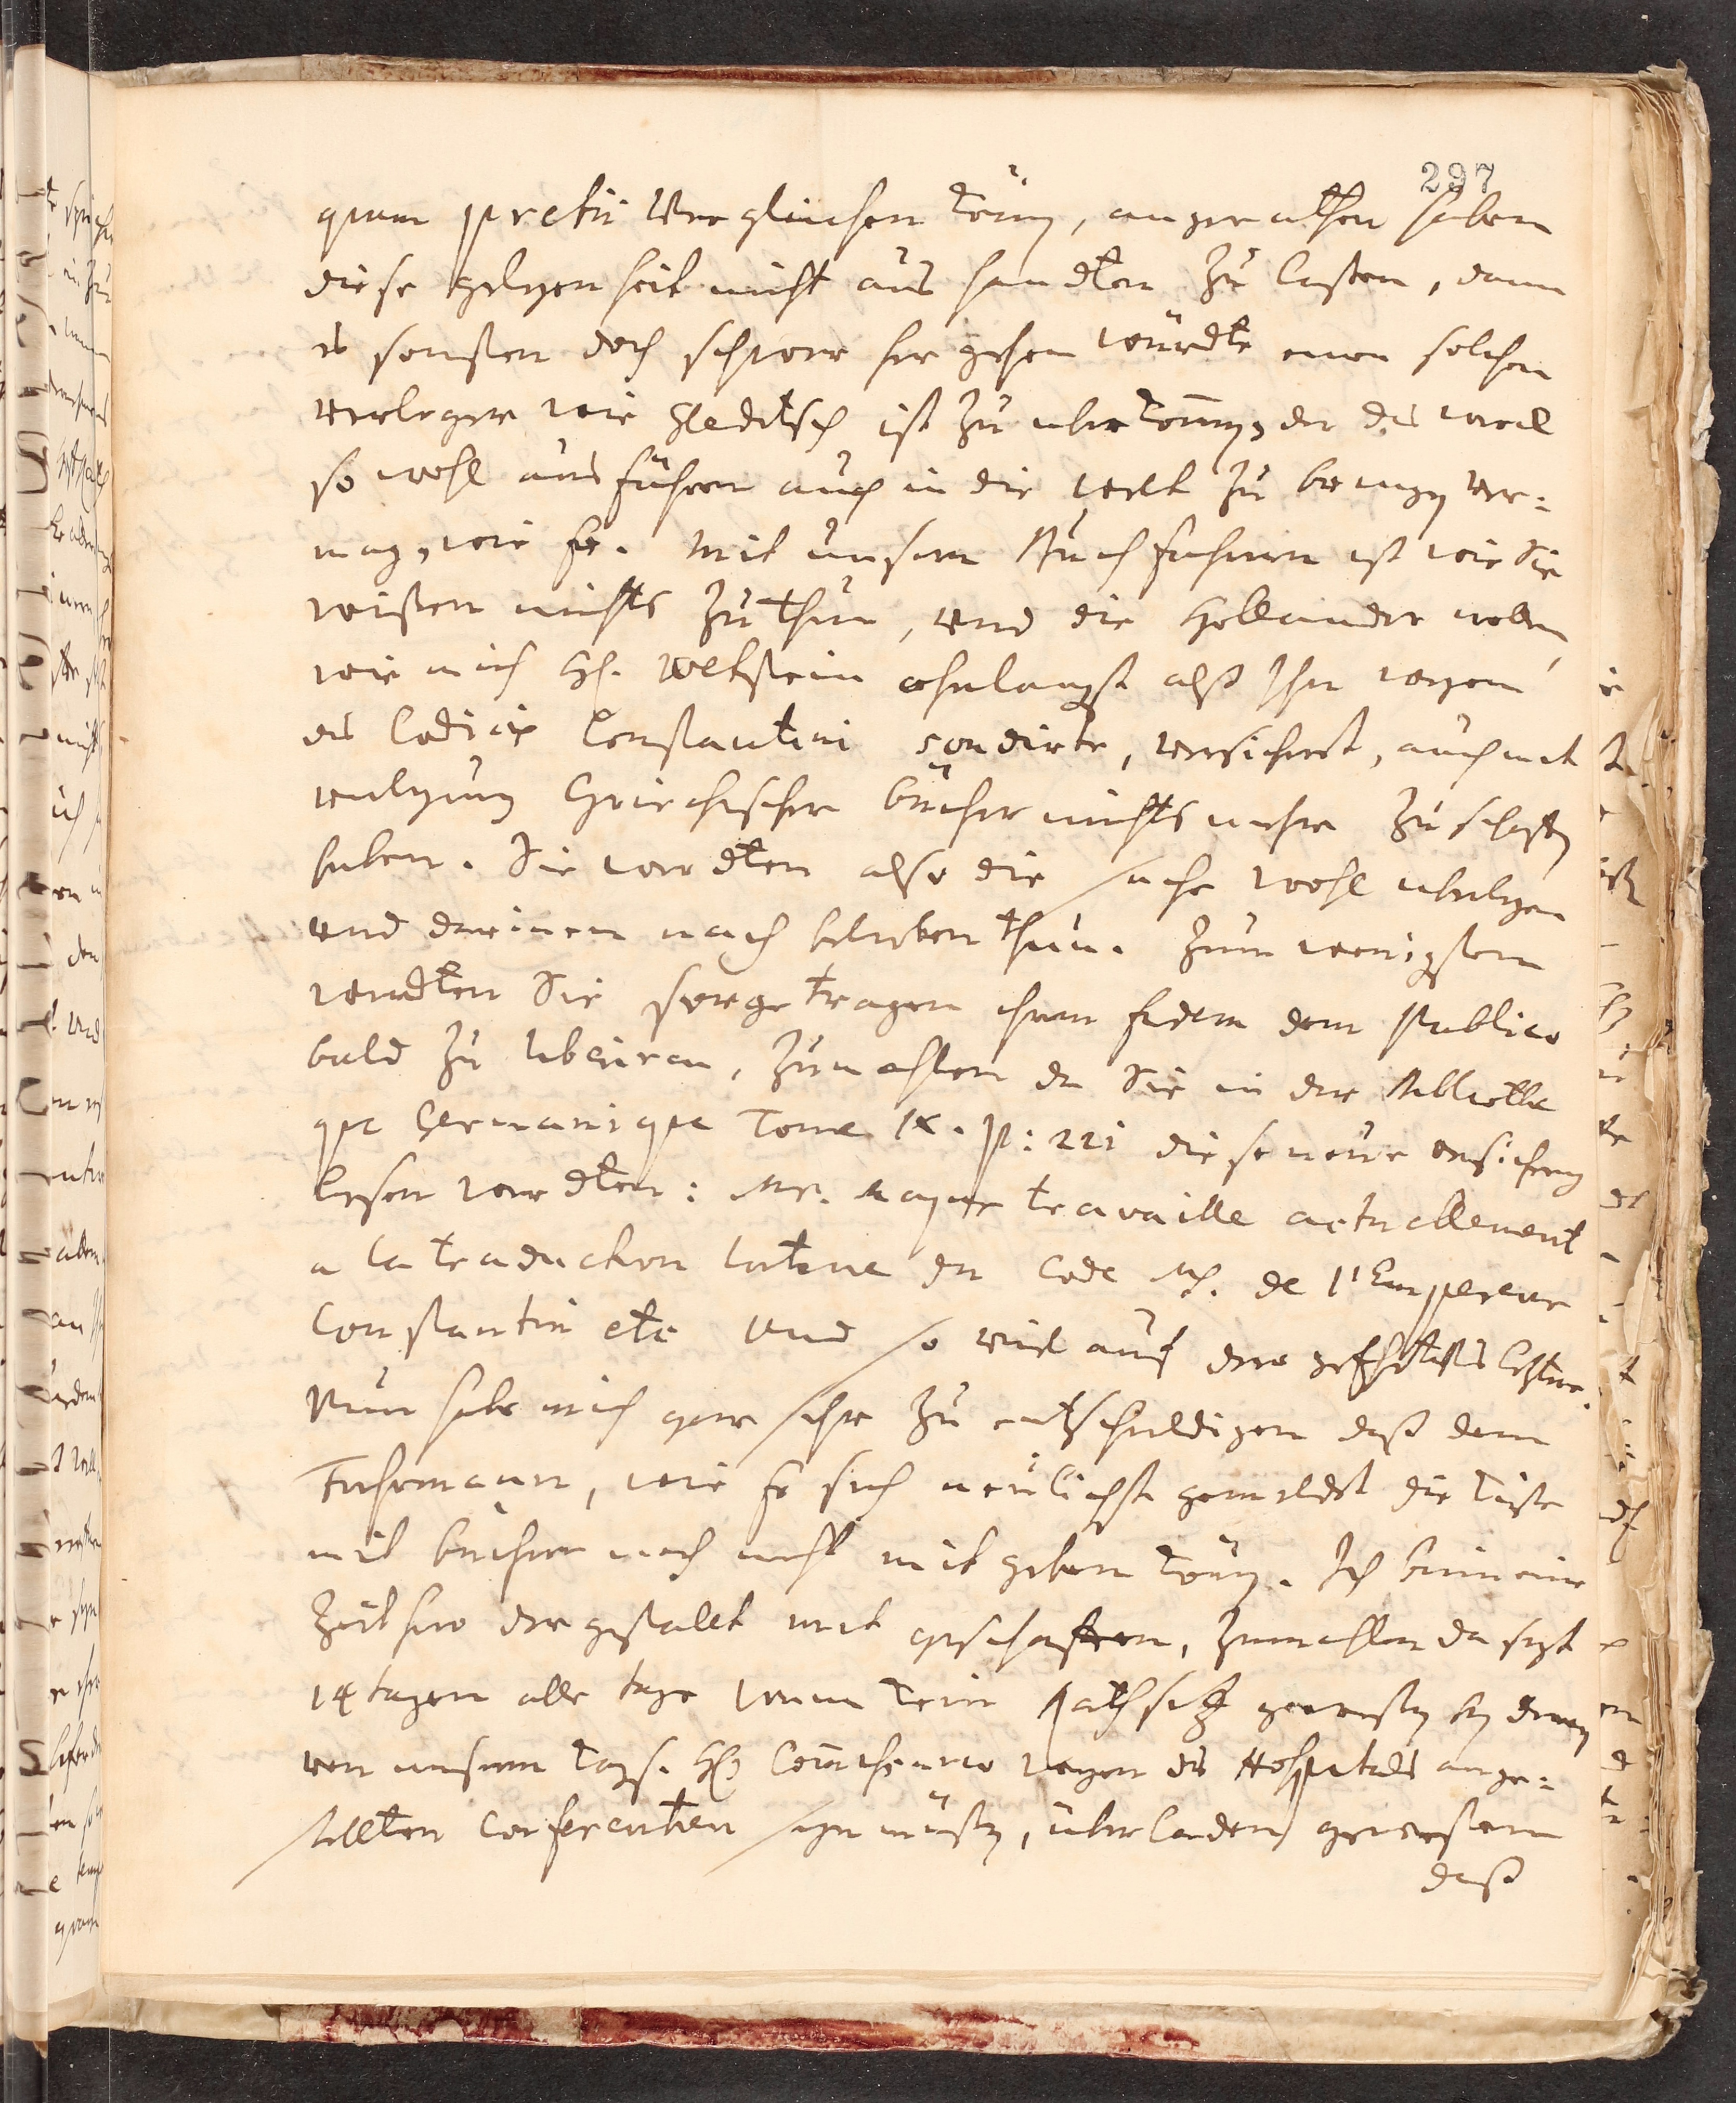 297
quam pretii Vergleichen könn, angerathen haben
diese gelegenheit nicht aus handten zu laßen, dann
es sonsten doch schwer her gehen würdte einen solchen
verleger wie Gleditsch ist zu uberkomm, der das werck
so wohl ausführen auch in die welt zu bringen ver:
mag, wie Er. Mit unsern Buchführern ist wie Sie
wißen nichts zu thun, und die Holländer wollen
wie mich H. Wetstein ohnlangst alß Ihn wegen
des Codicis Constantini sondirte, versichert, auch mit
verlegung Griechischer bücher nichts mehr zu schaffen
haben. Sie werdten also die sache wohl uberlegen
und darinnen nach belieben thun. Zum wenigsten
werdten Sie sorge tragen ihren fidem dem Publico
bald zu liberiren, zumahlen da Sie in der Bibliothe
que Germanique Tome IX. p: 221 diese neue versicherung
lesen werdten: Mr. Mayer travaille actuellement
a la traduction latine du Code Ms. de l'Empereur
Constantin etc und so viel auf dero letztere.
Nun habe mich gar sehr zu entschuldigen daß dem
Fuhrmann, wie Er sich neulichst gemeldet die kiste
mit bücher noch nicht mit geben könn. Ich bin eine
Zeit hero dergestallt mit geschäfften, zumahlen da seyt
14 tagen alle tage wann kein Rathsitz gewesen bey denen
von unserm Kays. H Commissario wegen des Hospitals ange:
stellten Conferentien seyn müßen, überladen gewesen
daß